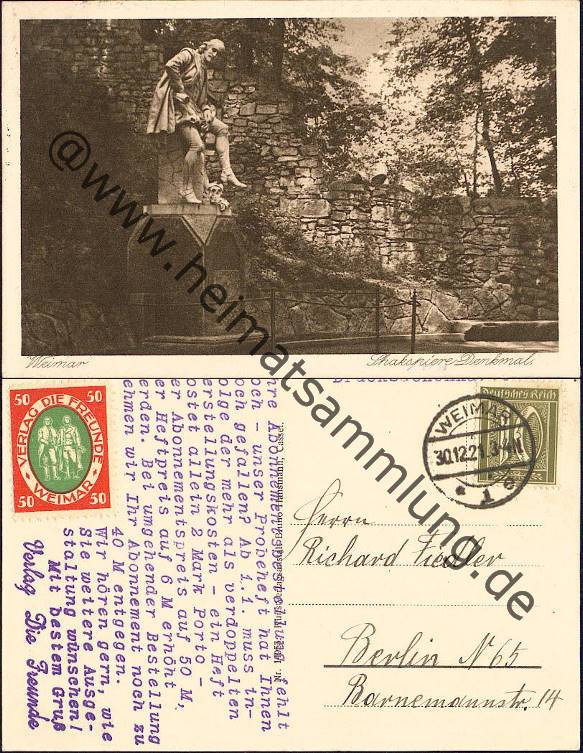 Weimar
Shakspiere-Denkmal.
@www.heimatsammlung.de
50 50
VERLAG DIE FREUNDE
WEIMAR
50 50
Deutsches Reich
WEIMAR
30.12.21.3-4N
Herrn
Richard Fiedler
Berlin N 65
Barnemannstr. 14
fehlt
hat Ihnen
och gefallen? Ab 1.1. muss in-
olge der mehr als verdoppelten
erstellungskosten - ein Heft
ostet allein 2 Mark Porto -
er Abonnementspreis auf 50 M,
er Heftpreis auf 6 M erhöht
erden. Bei umgehender Bestellung
ehmen wir Ihr Abonnement noch zu
40 M entgegen.
Wir hören gern, wie
Sie weitere Ausge-
staltung wünschen!
Mit bestem Gruß
Verlag Die Freunde
Cassel.